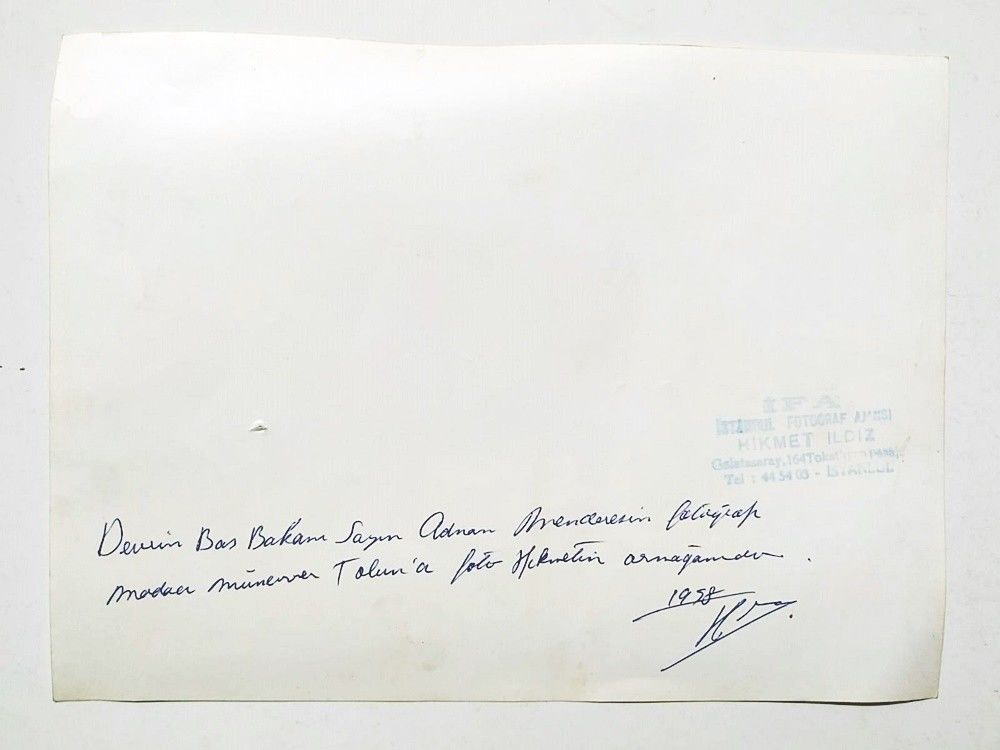 İFA
İSTANBUL FOTOĞRAF AJANSI
HİKMET ILDIZ
Galatasaray, 164
Tel : 44 54 03 - İSTANBUL
Devrin Bas Bakanı Sayın Adnan Menderesin fotoğraf
Münevver Tolun'a foto Hikmetin armağanıdır .
1958